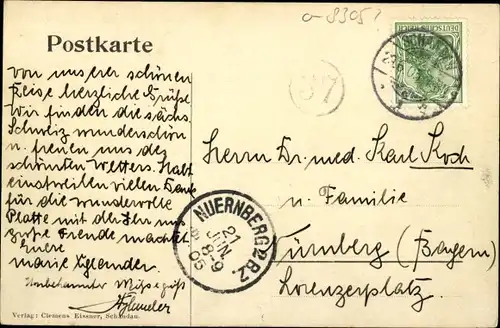 a 8305 1
Postkarte
von unserer schönen
Reise herzliche Grüße
Wir finden die sächs.
Schweiz wunderschön
u. freuen uns des
schönten Wetters. Habt
einstweilen vielen Dank
für die wundervolle
Platte mit der Ihr uns
große Freude machtet
Eure
Unbekannter Weise grüßt
Verlag: Clemens Eissner, Schandau.
37
DEUTSCHES REICH
Herrn Dr. med. Karl Koch
u. Familie
Nürnberg (Bayern)
Lorenzerplatz.
NUERNBERG 2 BZ.
21
JUN
8-9
05